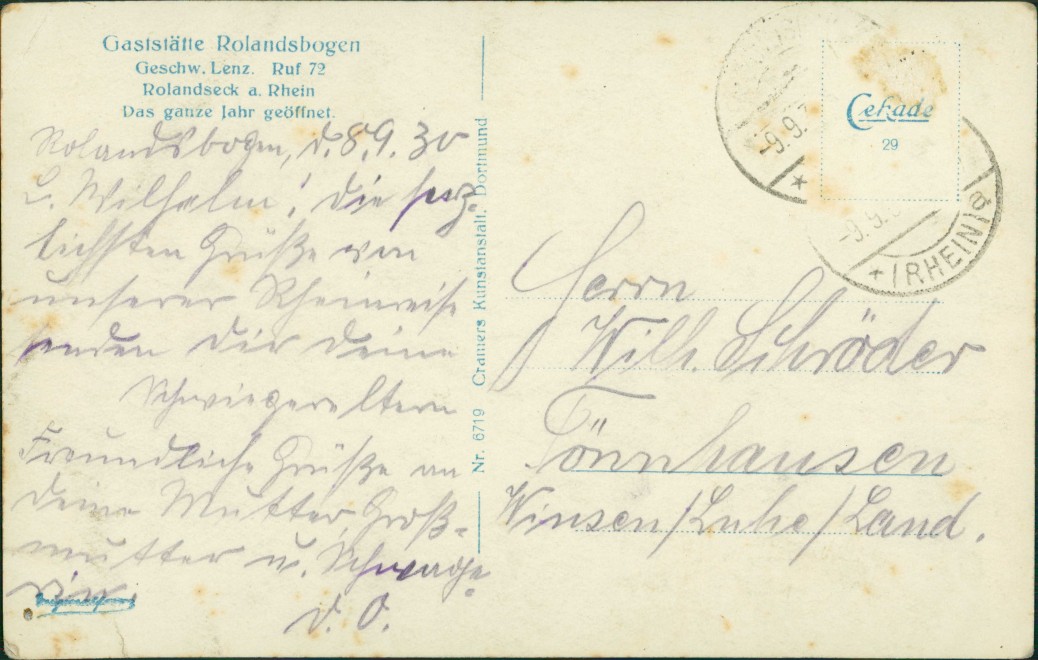 Gaststätte Rolandsbogen
Geschw. Lenz. Ruf 72
Rolandseck a. Rhein
Das ganze Jahr geöffnet.
Rolandsbogen, d. 8.9.30
L. Wilhelm! Die herz-
lichsten Grüße von
unserer Rheinreise
senden Dir Deine
Schwiegereltern
Freundliche Grüße an
Deine Mutter, Groß-
mutter u. Schwäge-
rin.
D. O.
Nr. 6719 Cramers Kunstanstalt, Dortmund
Cekade
29
-9.9.
-9.9.
(RHEIN) a
Herrn
Wilh. Schröder
Tönnhausen
Winsen/Luhe/Land.